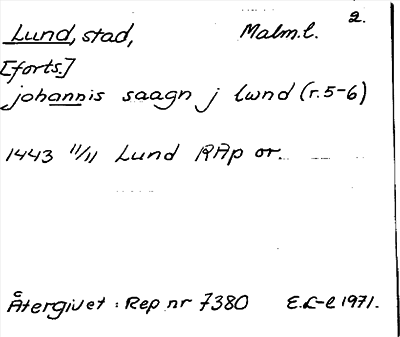 Lund, stad, Malm.l. 2.
[forts.]
johannis saagn j lwnd (r.5-6)
1443 11/11 Lund RAp or.
Återgivet: Rep nr 7380 E.L-l 1971.